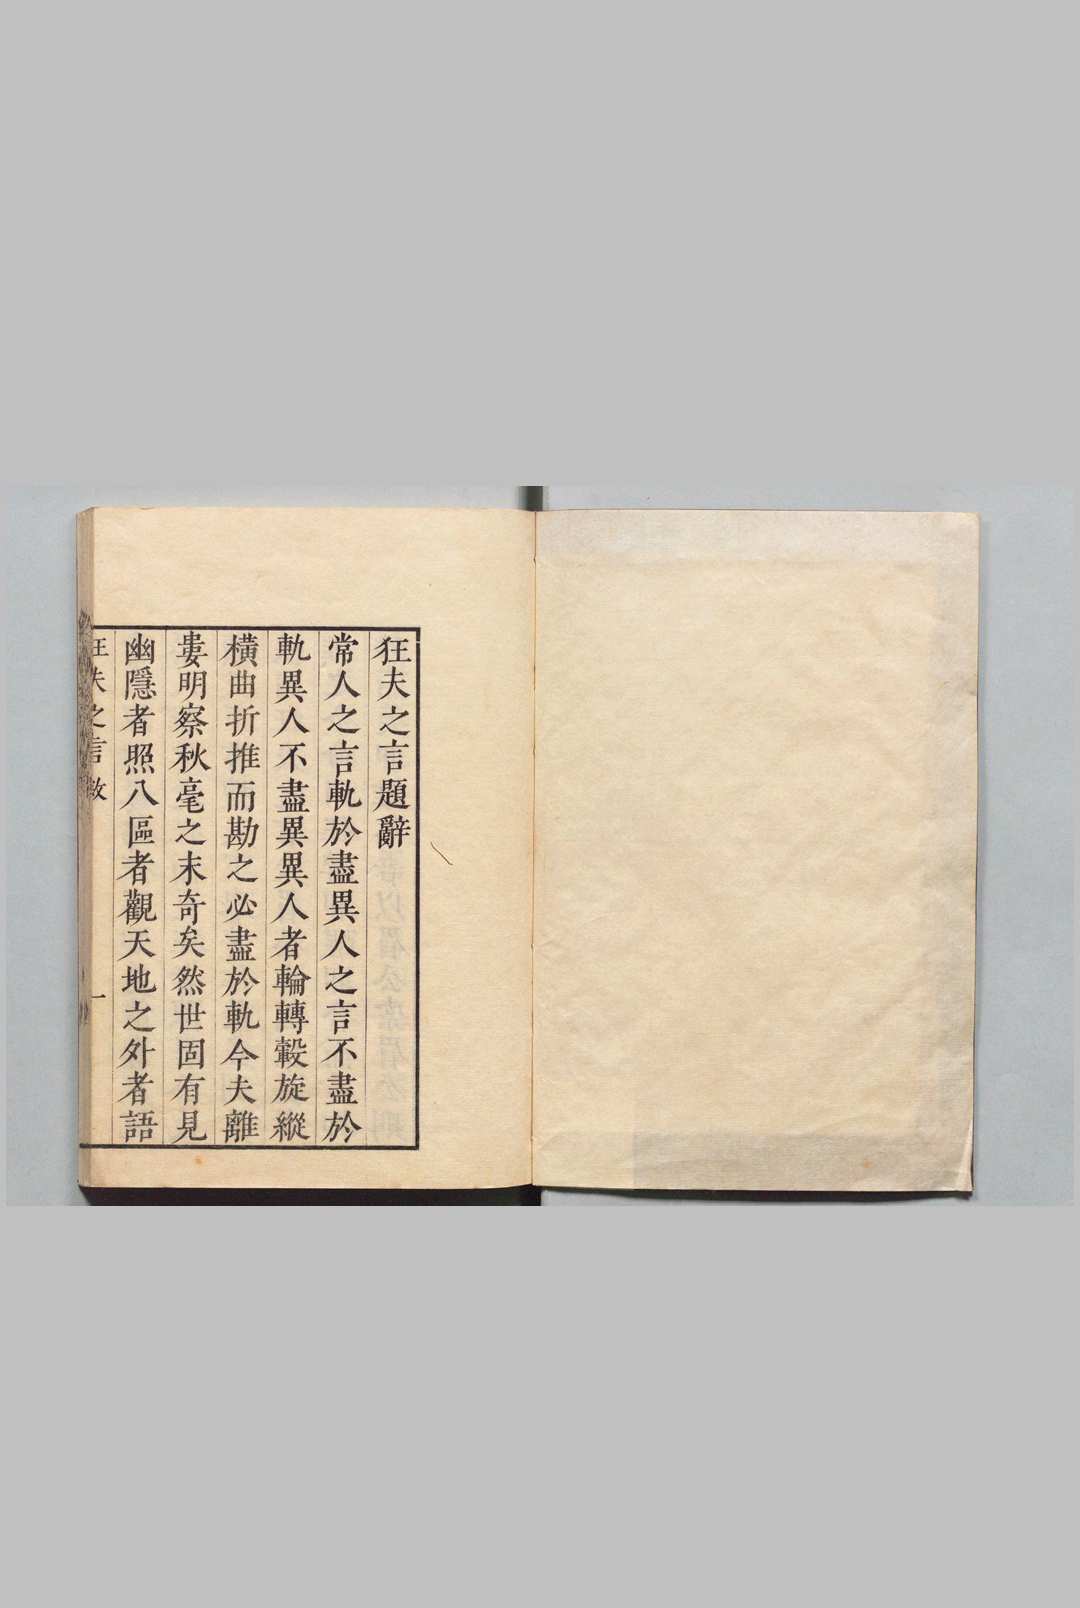 狂夫之言題辭
常人之言軌於盡異人之言不盡於
軌異人不盡異異人者輪轉轂旋縱
橫曲折推而勘之必盡於軌今夫離
婁明察秋毫之末奇矣然世固有見
幽隱者照八區者觀天地之外者語
狂夫之言
一